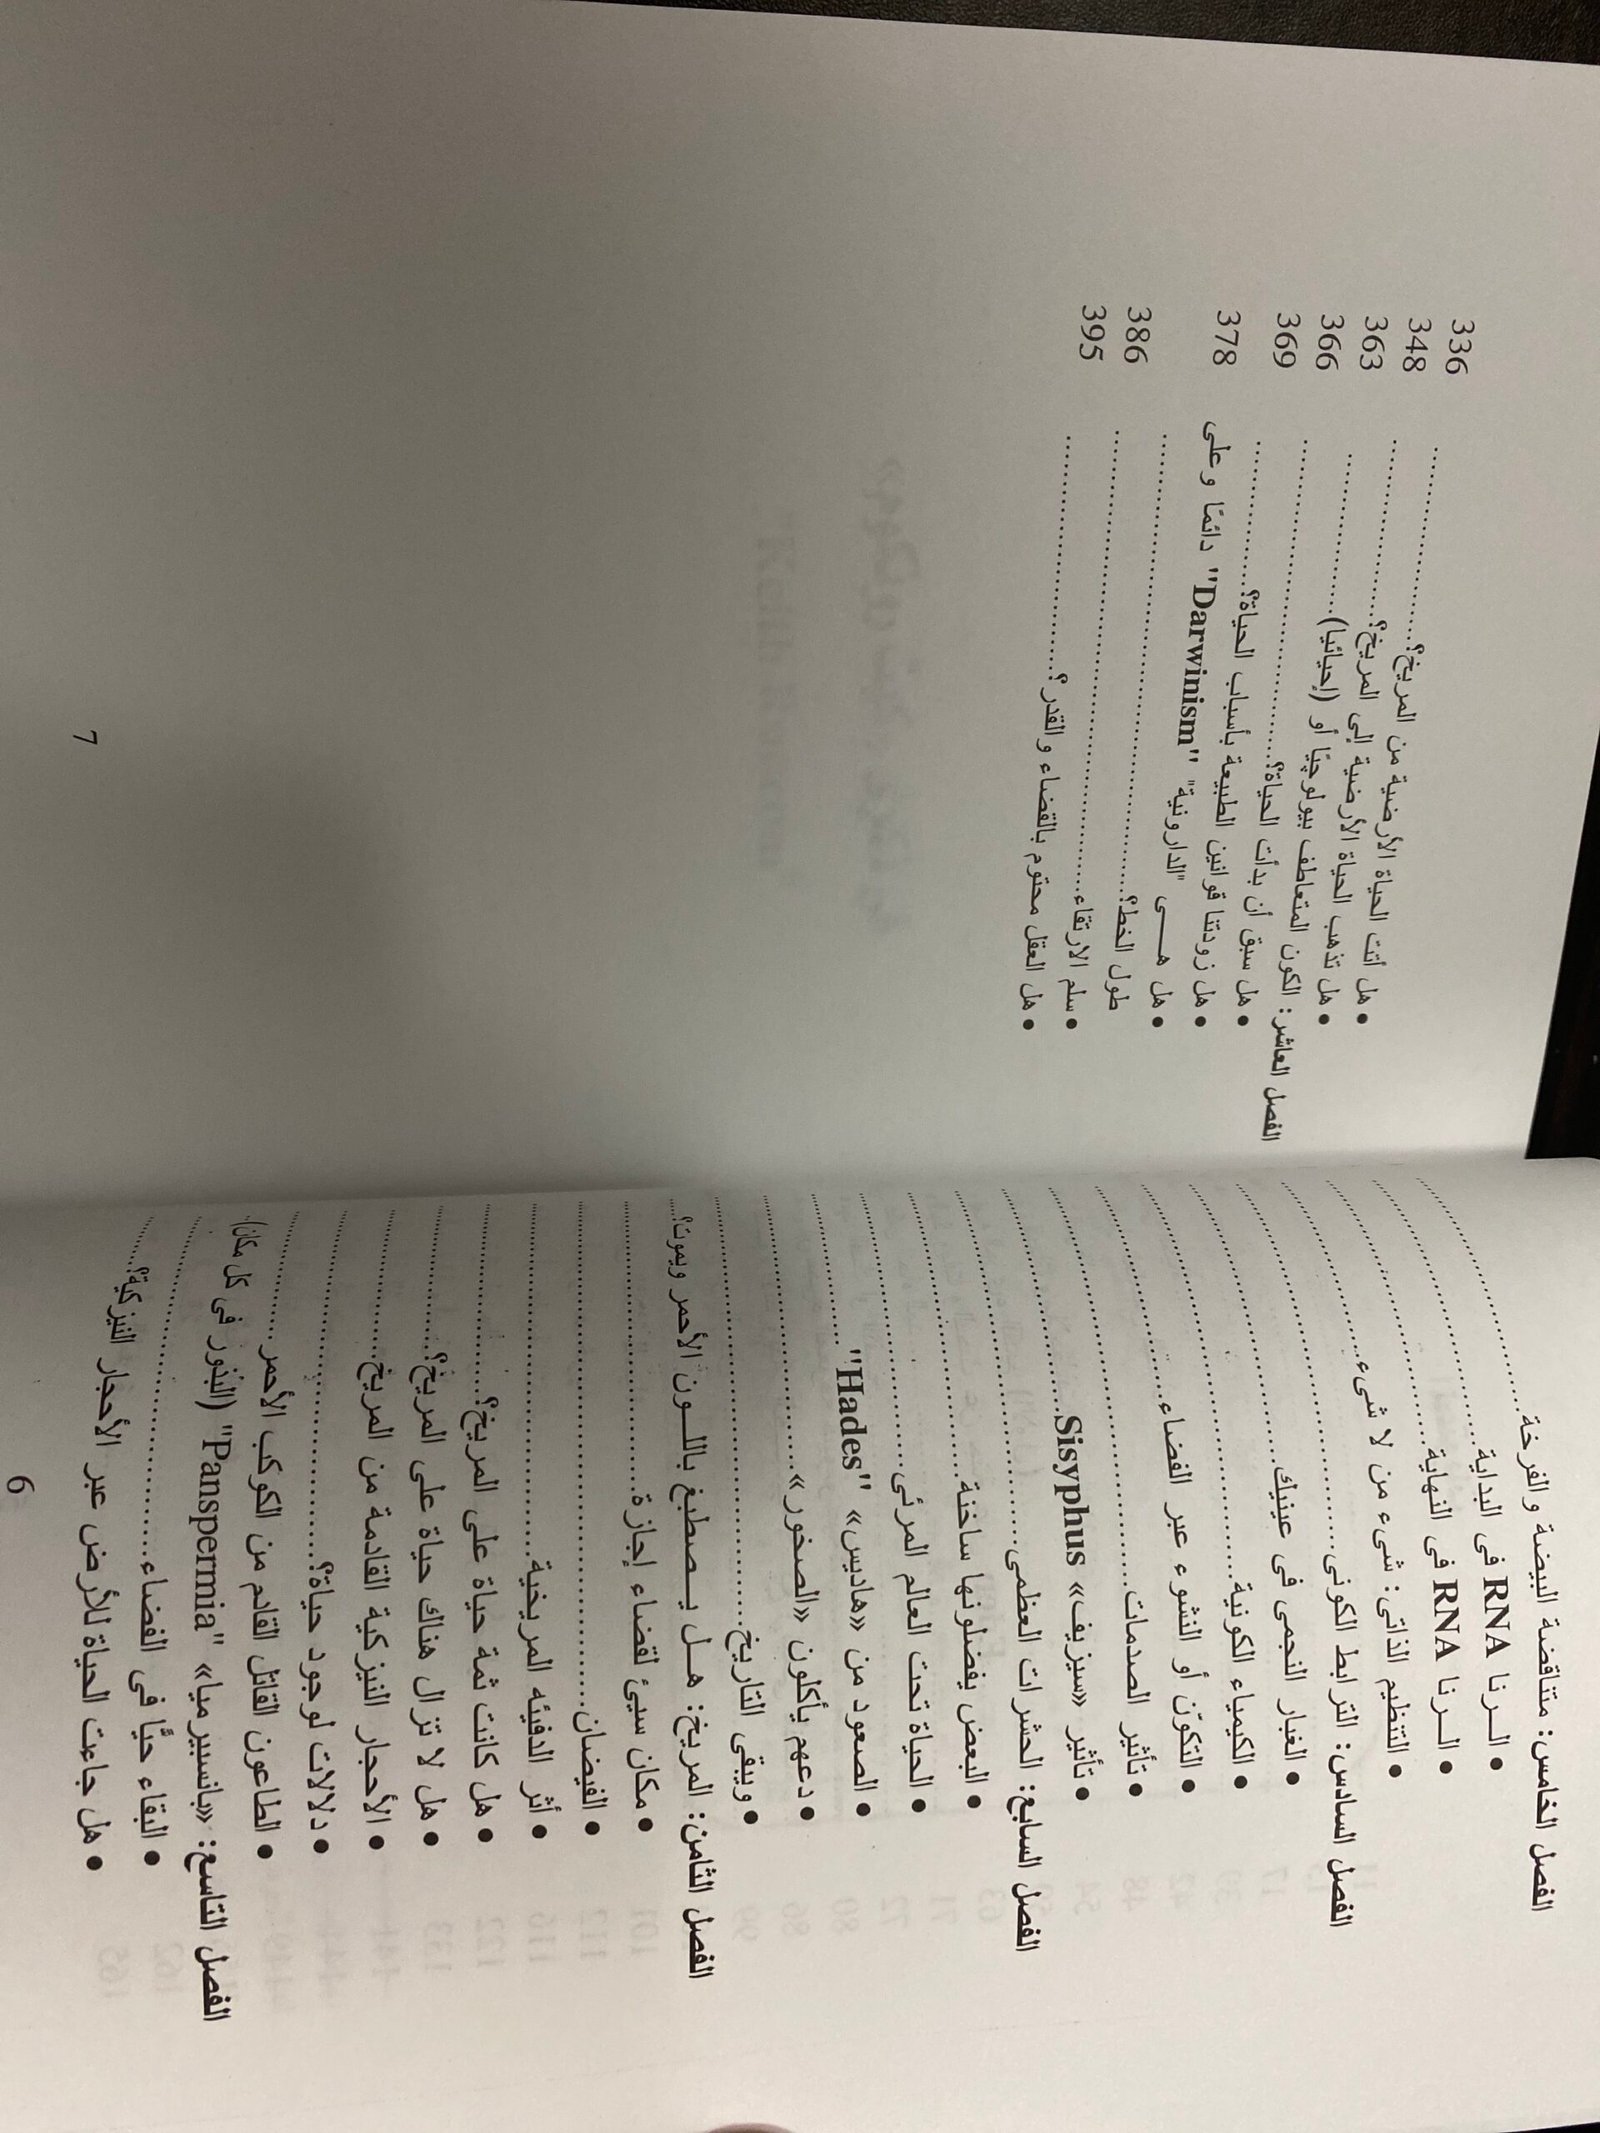 الفصل الخامس: متناقضة البيضة والفرخة
• الـرنا RNA فى البداية
• الـرنا RNA فى النهاية
• التنظيم الذاتى: شىء من لا شىء
الفصل السادس: الترابط الكونى
• الغبار النجمى فى عينيك
• الكيمياء الكونية
• التكوّن أو النشوء عبر الفضاء
• تأثير الصدمات
• تأثير «سيزيف» Sisyphus
الفصل السابع: الحشرات العظمى
• البعض يفضلونها ساخنة
• الحياة تحت العالم المرئى
• الصعود من «هاديس» "Hades"
• دعهم يأكلون «الصخور»
• ويبقى التاريخ
الفصل الثامن: المريخ: هـل يـصطبغ باللـون الأحمر ويموت؟
• مكان سيئ لقضاء إجازة
• الفيضان
• أثر الدفيئه المريخية
• هل كانت ثمة حياة على المريخ؟
• هل لا تزال هناك حياة على المريخ؟
• الأحجار النيزكية القادمة من المريخ
• دلالات لوجود حياة؟
• الطاعون القاتل القادم من الكوكب الأحمر
الفصل التاسع: «بانسبيرميا» "Panspermia" (البذور فى كل مكان)
• البقاء حيًّا فى الفضاء
• هل جاءت الحياة للأرض عبر الأحجار النيزكية؟
6
• هل أتت الحياة الأرضية من المريخ؟ 336
• هل تذهب الحياة الأرضية إلى المريخ؟ 348
الفصل العاشر: الكون المتعاطف بيولوچيًا أو (إحيائيا) 363
• هل سبق أن بدأت الحياة؟ 366
• هل زودتنا قوانين الطبيعة بأسباب الحياة؟ 369
• هل هـــى "الدارونية" "Darwinism" دائمًا وعلى
طول الخط؟ 378
• سلم الارتقاء 386
• هل العقل محتوم بالقضاء والقدر؟ 395
7